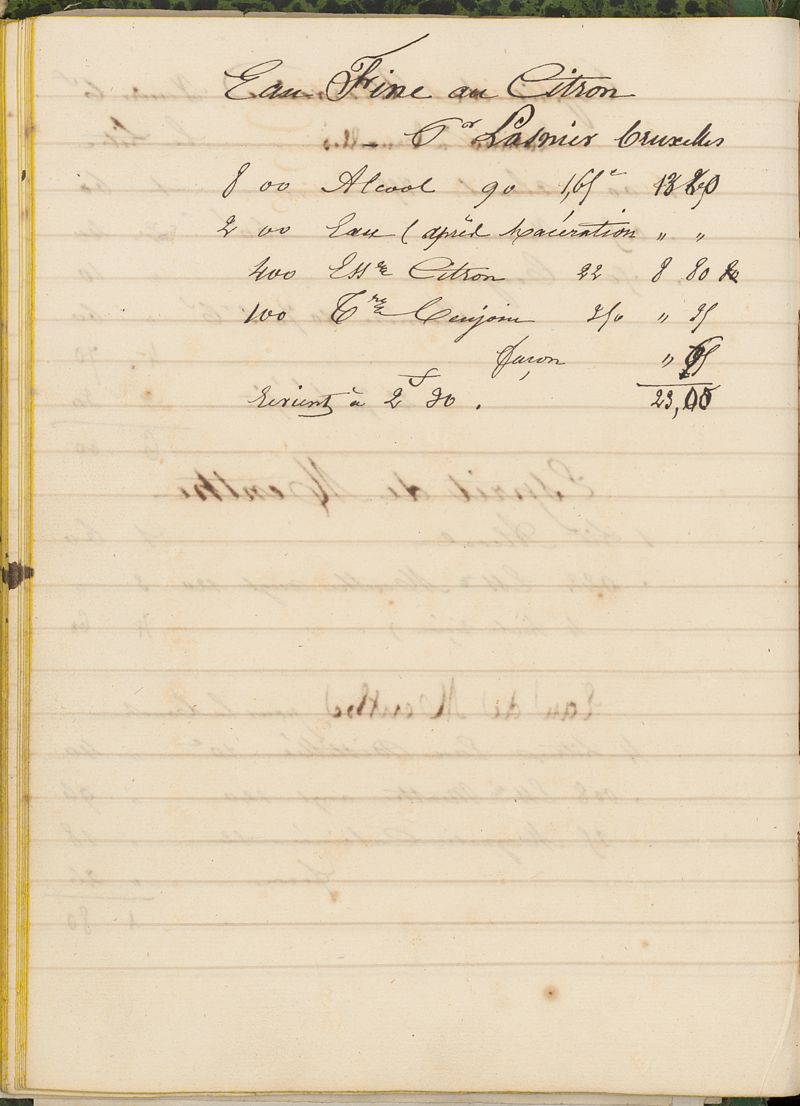 Eau Fine au Citron
Pr Lasnier Bruxelles
8 00 Alcool 90 1,65c 13 20
2 00 Eau (après Macération " "
400 Essce Citron 22 8 80
100 Tre Benjoin 3/50 " 35
façon " 65
revient à 2f 30. 23,00